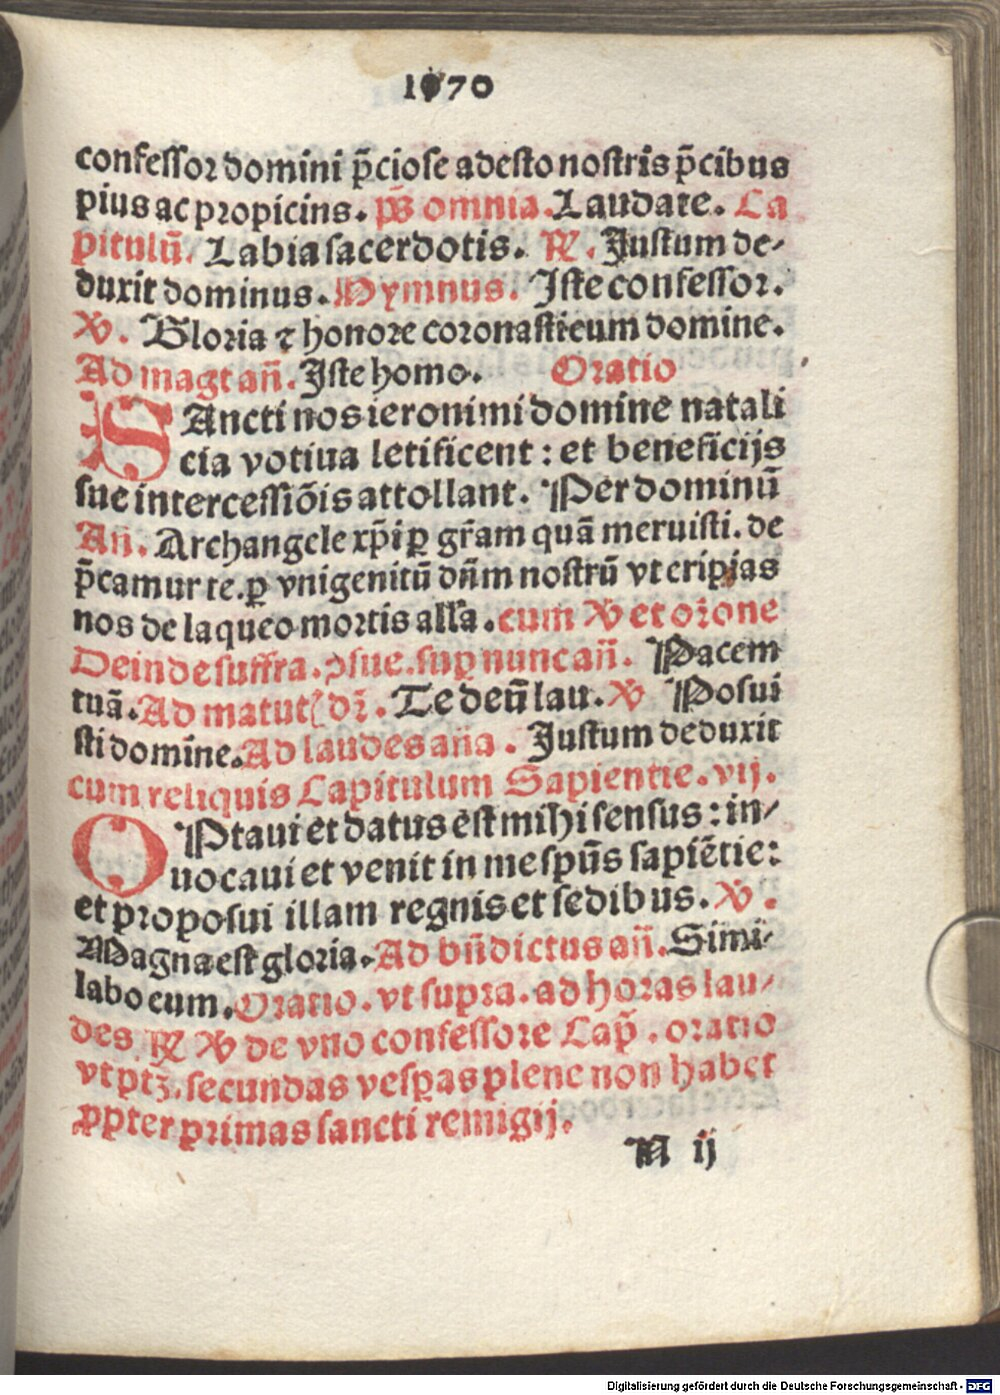 1970
confessor domini p̄ciose adesto nostris p̄cibus
pius ac propicius. p̄s omnia. Laudate. Ca
pitulū. Labia sacerdotis. ℟. Justum de-
duxit dominus. Hymnus. Iste confessor.
℣. Gloria ⁊ honore coronasti eum domine.
Ad mag̅t an̄. Iste homo. Oratio
SAncti nos ieronimi domine natali
cia votiua letificent : et beneficijs
sue intercessiōis attollant. Per dominū
An̄. Archangele xp̄i ꝑ gr̄am quā meruisti. de
p̄camur te. ꝑ vnigenitū dn̄m nostrū vt eripias
nos de laqueo mortis alla̅. cum ℣ et or̄one
Deinde suffra. ꝯsue. suꝑ nunc an̄. Pacem
tuā. Ad matut̅ dr̄. Te deū lau. ℣ Posui
sti domine. Ad laudes an̄a. Justum deduxit
cum reliquis Capitulum Sapientie. vij.
OPtaui et datus est mihi sensus : in-
uocaui et venit in me sp̄us sapiētie:
et proposui illam regnis et sedibus. ℣.
Magna est gloria. Ad bn̄dictus an̄. Simi-
labo eum. Oratio. vt supra. ad horas lau-
des ℟ ℣ de vno confessore Cap̄. oratio
vt ptꝫ. secundas vesꝑas plene non habet
ꝓpter primas sancti remigij.
N ij
Digitalisierung gefördert durch die Deutsche Forschungsgemeinschaft - DFG